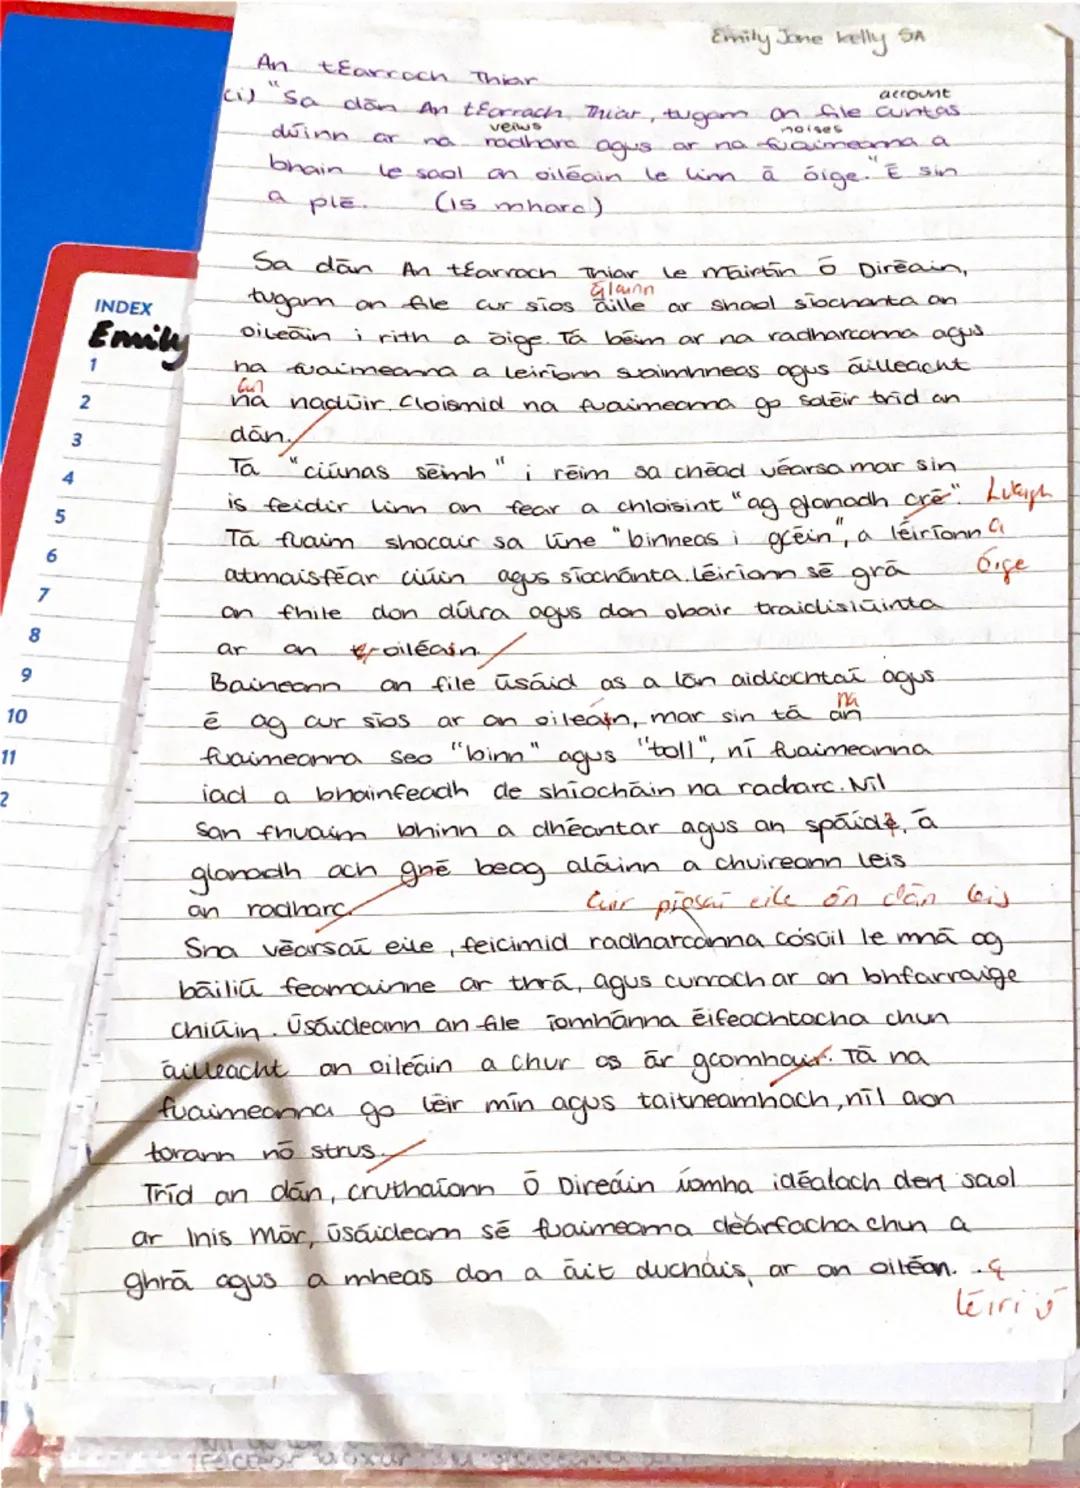 Emily Jane Kelly 5A
An tEarrach Thiar
account
(i) "Sa dán An tEarrach Thiar, tugann an file cuntas
veiws noises
dúinn ar na radharc agus ar na fuaimeanna a
bhain le saol an oiléain le linn á óige." É sin
a plé. (15 mharc)
Sa dán An tEarrach Thiar le Máirtín Ó Direáin,
álainn
tugann an file cur síos áille ar shaol síochanta an
INDEX
oileáin i rith a óige. Tá béim ar na radharcanna agus
Emily
na fuaimeanna a leiríonn suaimhneas agus áilleacht
1
an
na nadúir. Cloisimid na fuaimeanna go soléir tríd an
2
dán.
3
Tá "ciúnas séimh" i réim sa chéad véarsa mar sin
4
is feidir linn an fear a chloisint "ag glanadh cré". Luaigh
5
Tá fuaim shocair sa líne "binneas i gcéin", a léiríonn a
6
atmaisféar ciúin agus síochánta. Léiríonn sé grá óige
7
an fhile don dúlra agus don obair traidisiúinta
8
ar an oiléain.
9
Baineann an file úsáid as a lán aidiachtaí agus
10
na
é ag cur síos ar an oileain, mar sin tá an
11
fuaimeanna seo "binn" agus "toll", ní fuaimeanna
2
iad a bhainfeadh de shíocháin na radharc. Níl
san fhuaim bhinn a dhéantar agus an spáid, á
glanadh ach gné beag aláinn a chuireann leis
an radharc. Cuir píosaí eile ón dán leis
Sna véarsaí eile, feicimid radharcanna cosúil le mná ag
báiliú feamainne ar thrá, agus currach ar an bhfarraige
chiúin. Úsáideann an file íomhánna éifeachtacha chun
áilleacht an oiléain a chur os ár gcomhair. Tá na
fuaimeanna go léir mín agus taitneamhach, níl aon
torann nó strus.
Tríd an dán, cruthaíonn Ó Direáin íomha idéalach den saol
ar Inis Mór, úsáideann sé fuaimeanna deárfacha chun a
ghrá agus a mheas don a áit ducháis, ar an oiléan. a
léiriú